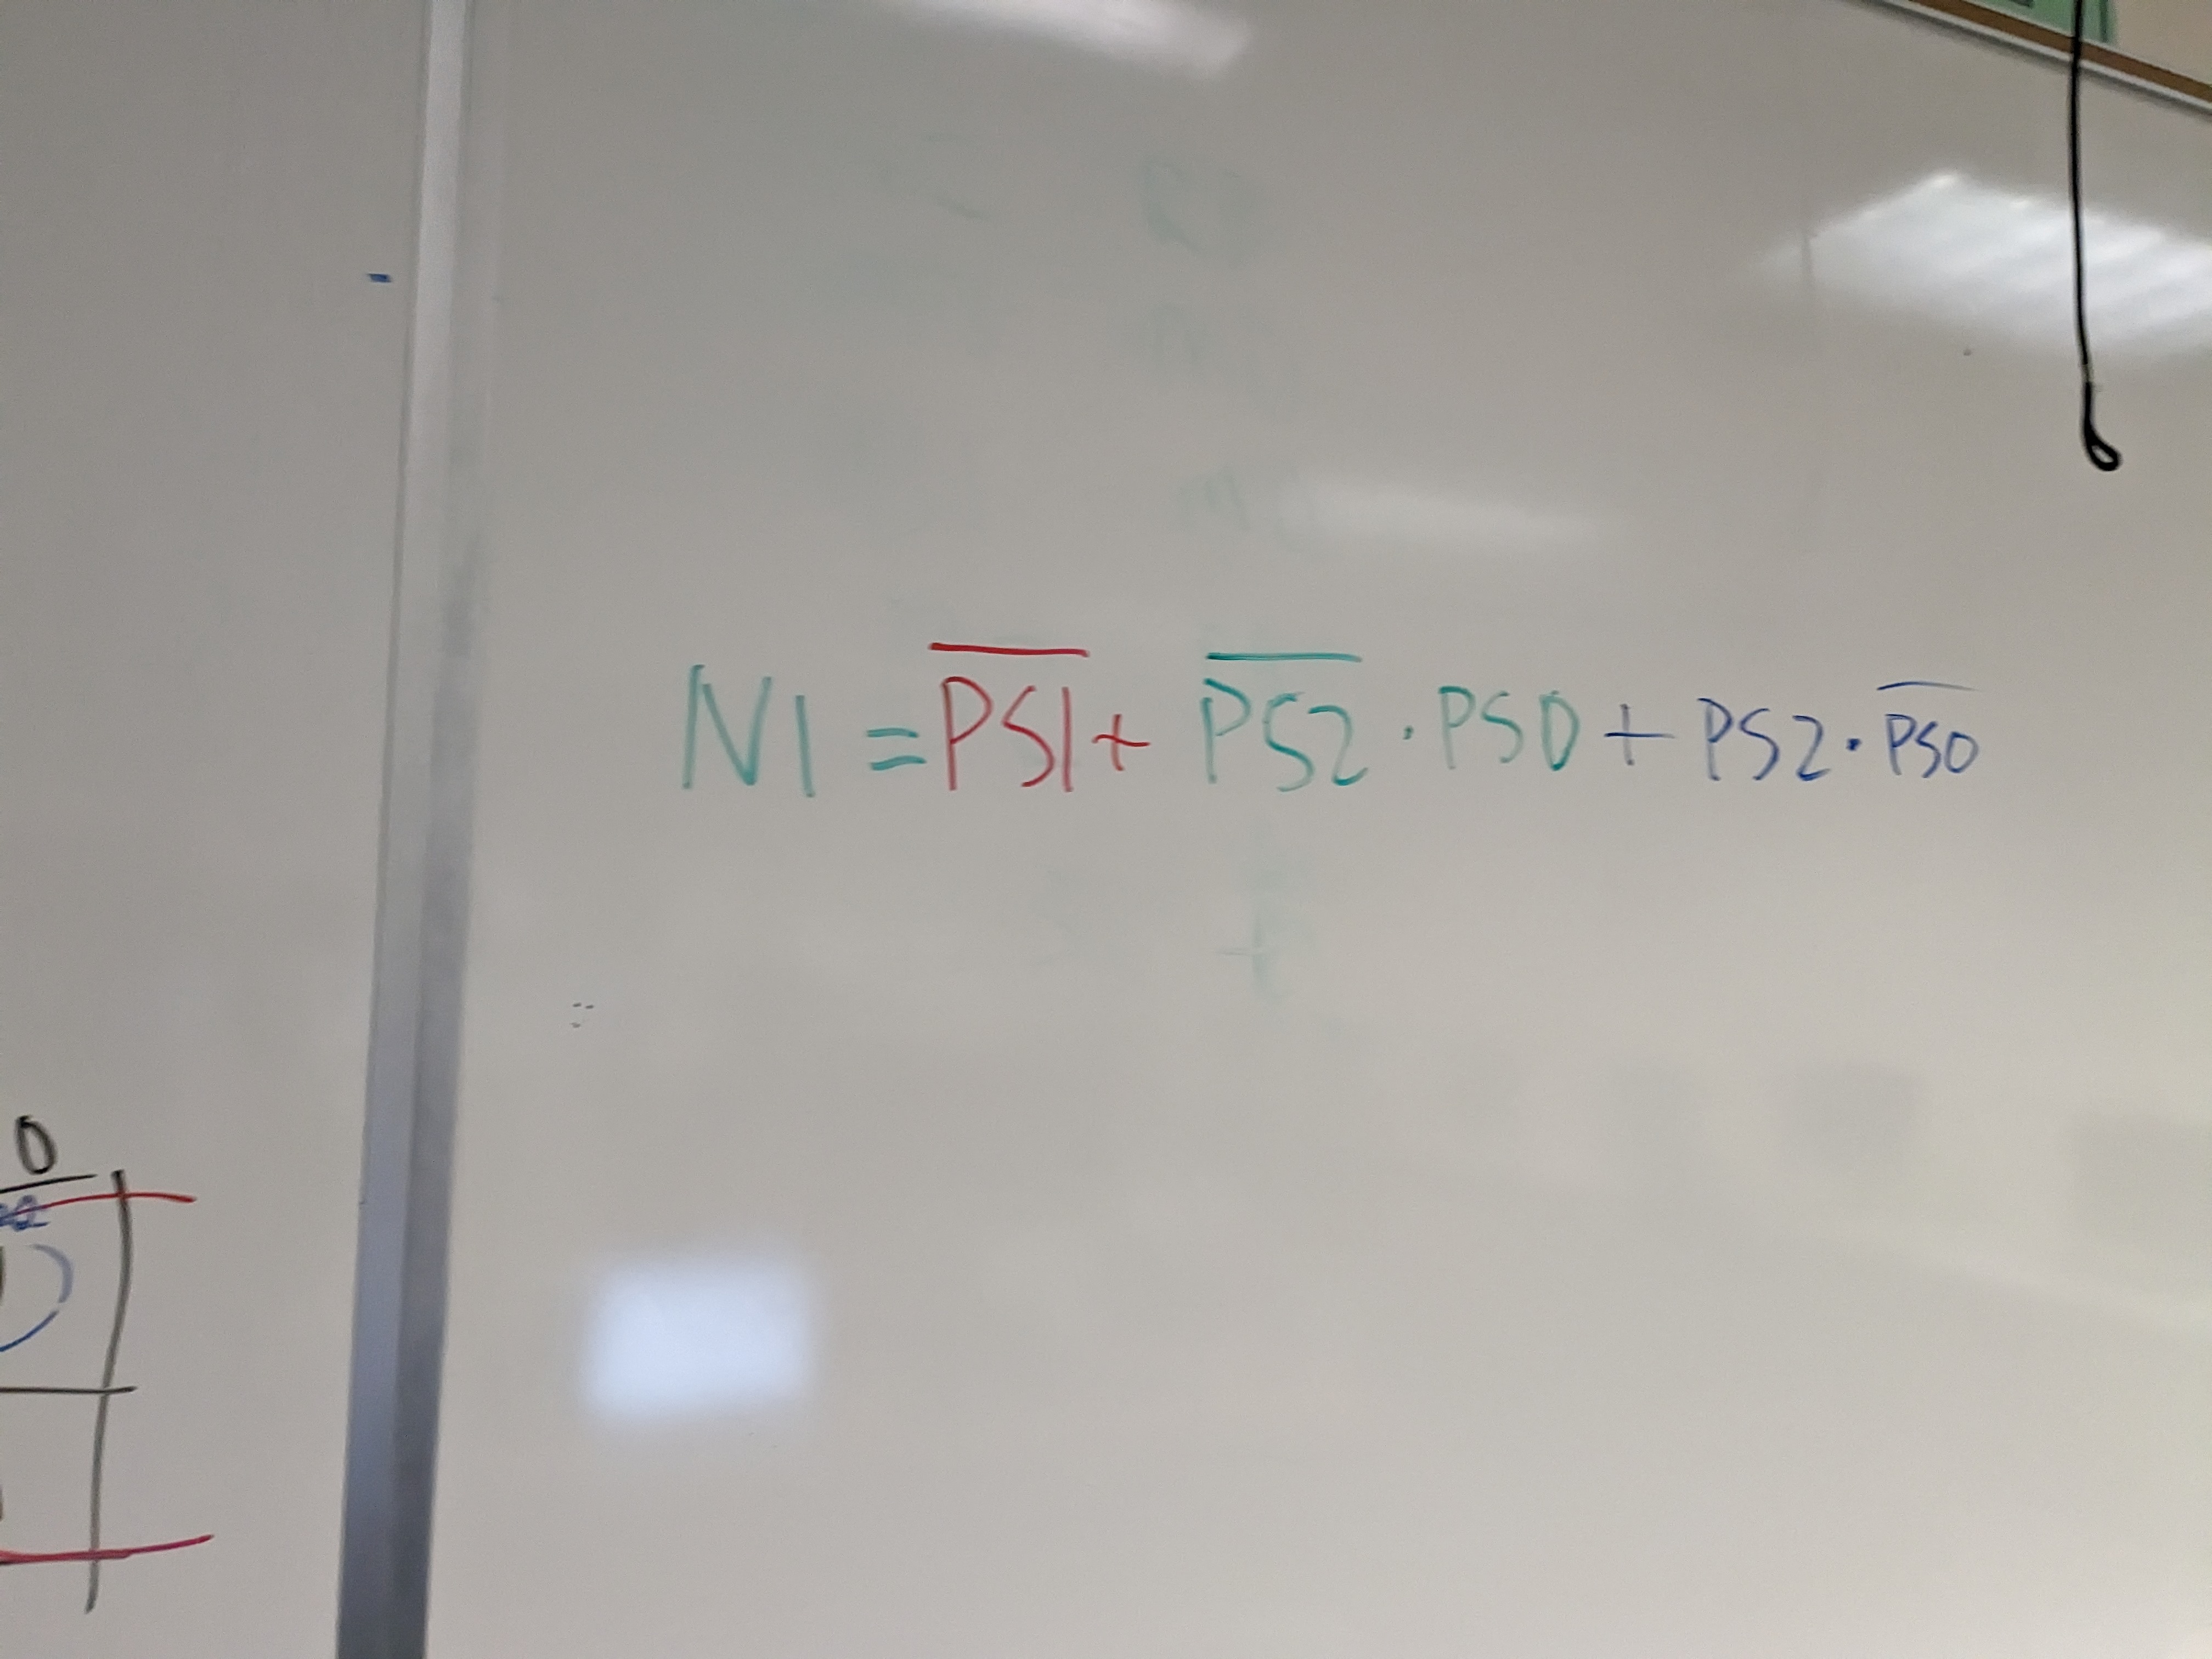 N1 = P̅S̅1̅ + P̅S̅2̅ · PS0 + PS2 · P̅S̅0̅
0